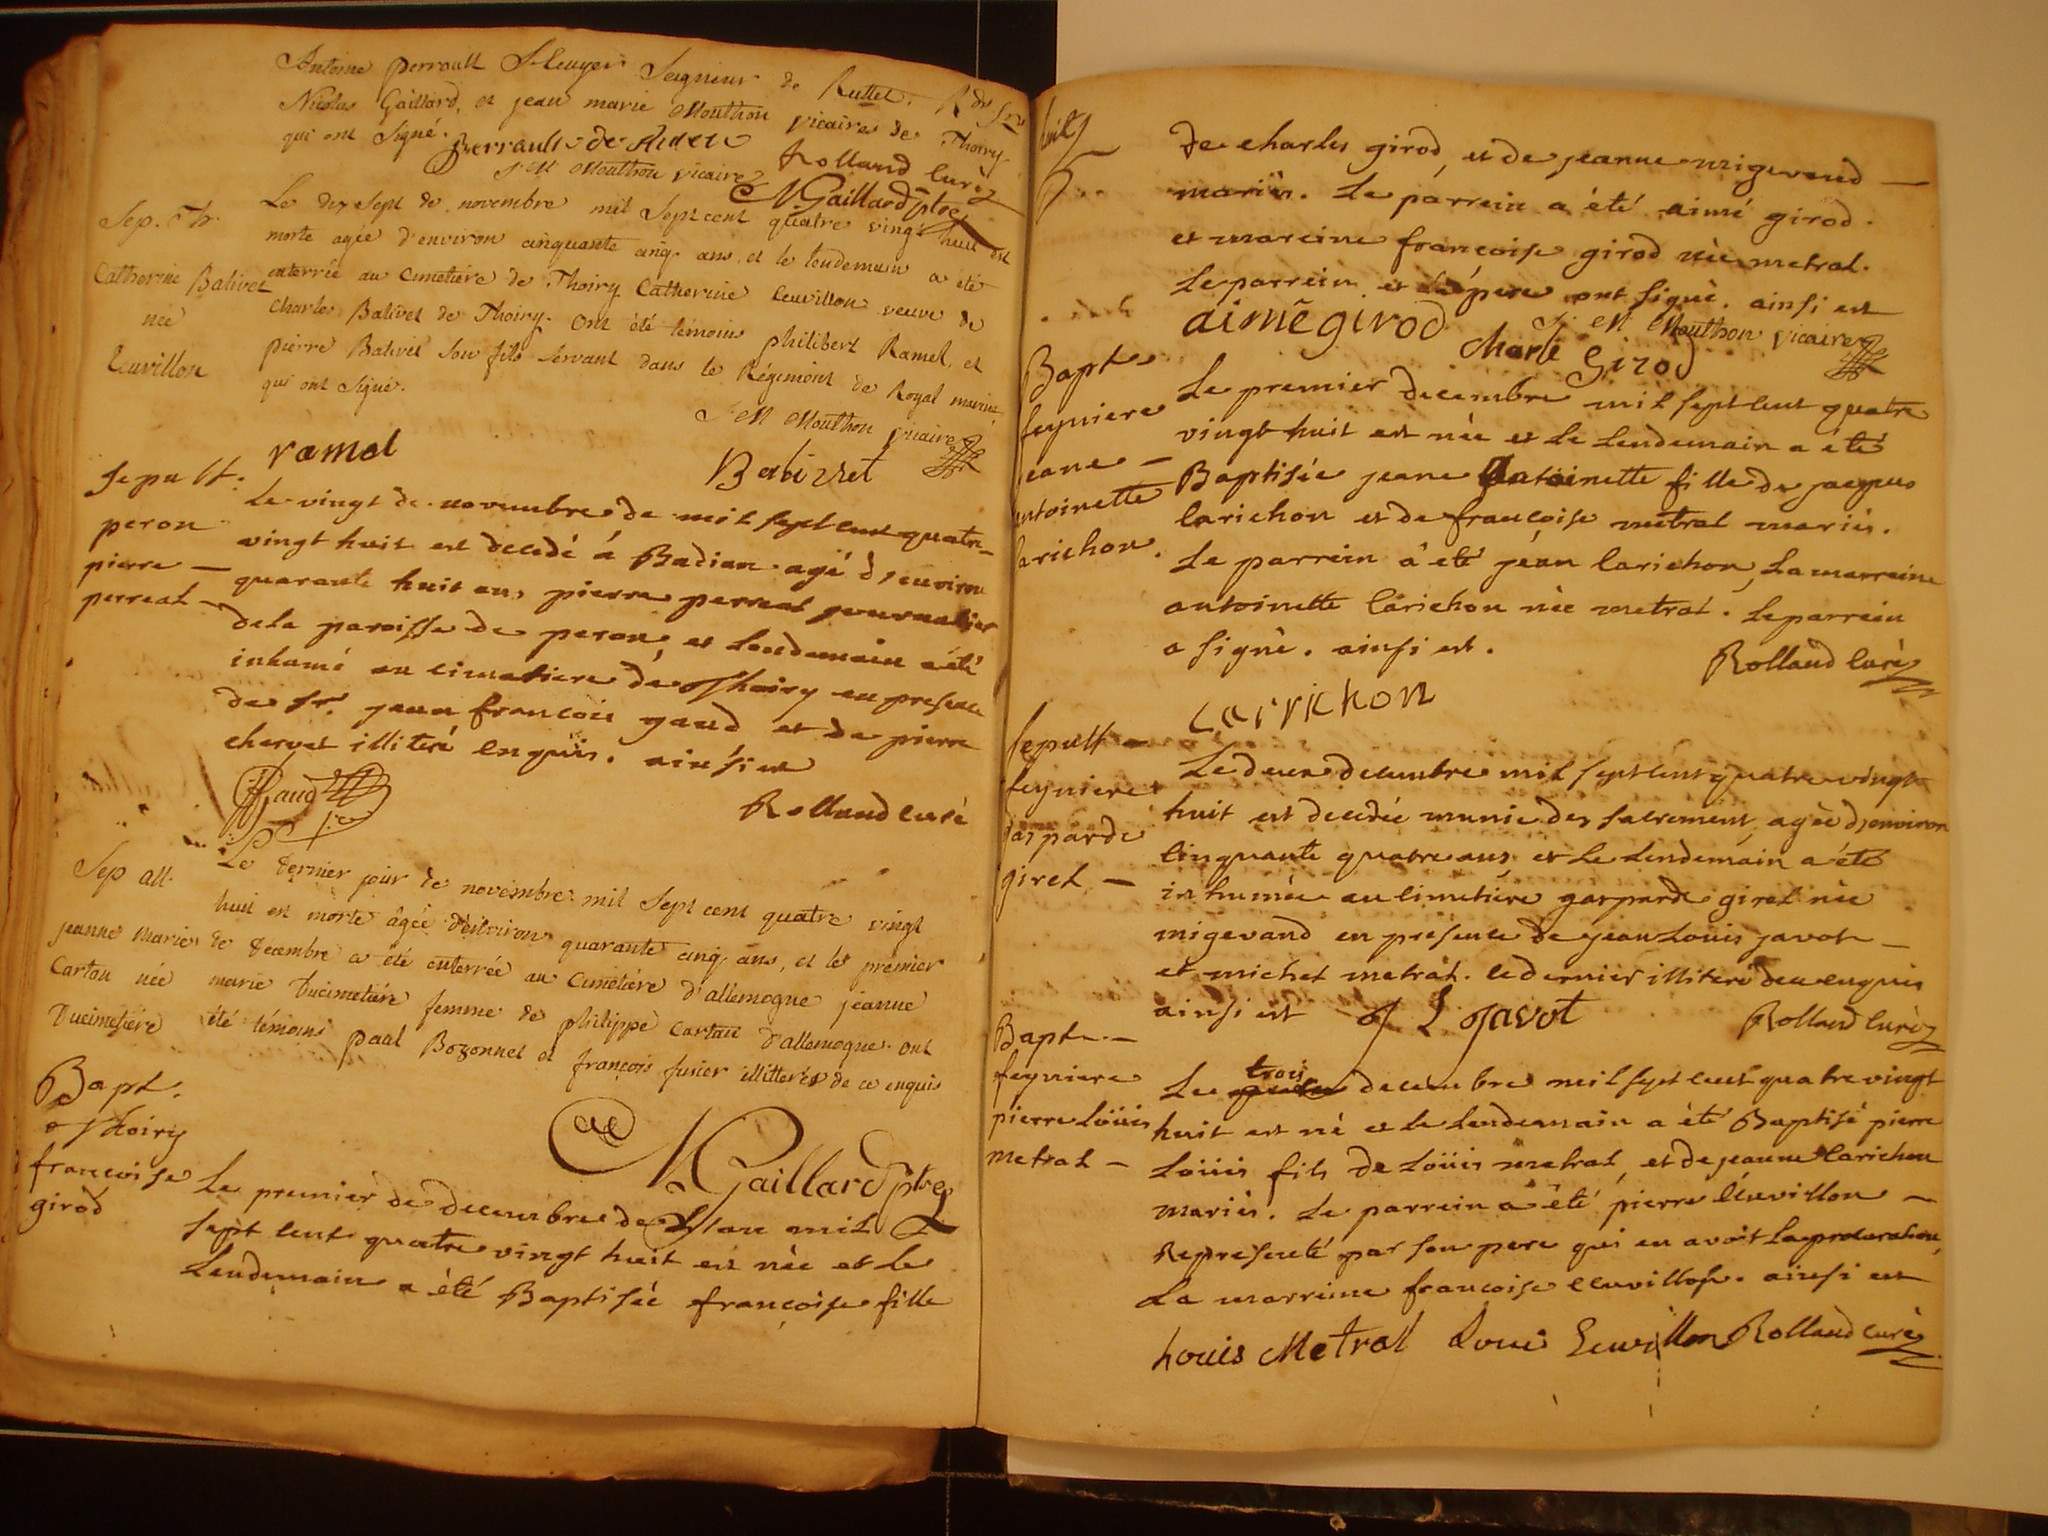 Antoine perrault Ecuyer Seigneur de Ruttet. Rds Srs
Nicolas Gaillard, et jean marie Mouthon vicaires de Thoiry
qui ont signé. Perrault de Rutet
J M Mouthon vicaire Rolland Curé
N Gaillard ptre
Sep. Th.
Catherine Balivet
née
leuvillon
Le dix sept de novembre mil sept cent quatre vingt huit est
morte agée d'environ cinquante cinq ans, et le lendemain a été
enterrée au Cimetière de Thoiry Catherine leuvillon veuve de
Charles Balivet de Thoiry. Ont été témoins philibert Ramel, et
pierre Balivet son fils servant dans le Régiment de Royal marine
qui ont signé.
J M Mouthon vicaire
ramel
Sepult:
peron
pierre —
perreal —
Le vingt de novembre de mil sept cent quatre
vingt huit est decedé á Badian agé d'environ
quarante huit ans pierre perreal journalier
de la paroisse de peron, et lendemain a été
inhumé au cimetiere de Thoiry en presence
de sr. jean françois gaud et de pierre
chervet illiteré enquis. ainsi est
Gaud
Rolland curé
Sep all.
jeanne marie
Cartan née
Ducimetiére
Le dernier jour de novembre mil sept cent quatre vingt
huit est morte âgée d'environ quarante cinq ans, et le premier
de decembre a été enterrée au Cimetiére d'allemogne jeanne
marie Ducimetiére femme de philippe Cartan d'allemogne. Ont
été témoins paul Bozonnet et françois fusier illitterés de ce enquis
N Gaillard ptre
Bapt.
Thoiry
françoise
girod
Le premier de decembre de L'an mil
sept cent quatre vingt huit est née et le
Lendemain a été Baptisée françoise fille
huit
de charles girod, et de jeanne migevand —
mariés. Le parrein a été aimé girod.
et mareine françoise girod née metral.
Le parrein et le pere ont signé. ainsi est
J. M Mouthon vicaire
aimé girod
Charle Girod
Bapt
feyniere
jeane —
antoinette
larichon.
Le premier decembre mil sept cent quatre
vingt huit est née et le Lendemain a été
Baptisée jeane Antoinette fille de jacques
larichon et de françoise metral mariés.
Le parrein a été jéan larichon, La marreine
antoinette larichon née metral. Le parrein
a signé. ainsi est.
Rolland curé
Larrichon
sepult —
feyniere
gasparde
giret —
Le deux decembre mil sept cent quatre vingt
huit est decedée munie des sacrements agée d'environ
cinquante quatre ans et le Lendemain a été
inhumée au cimetiere gasparde giret née
migevand en présence de jean Louis javot —
et michel metral. ce dernier illiteré de ce enquis
ainsi est J L Javot
Rolland curé
Bapt —
feyniere
pierre Loüis
metral —
trois
Le decembre mil sept cent quatre vingt
huit est né et le Lendemain a été Baptisé pierre
Loüis fils de Loüis metral, et de jeanne larichon
mariés. Le parrein a été pierre leuvillon —
Representé par son pere qui en avoit la procuration,
La marreine françoise leuvillon. ainsi est
Louis Metral Loui Leuvillon Rolland curé